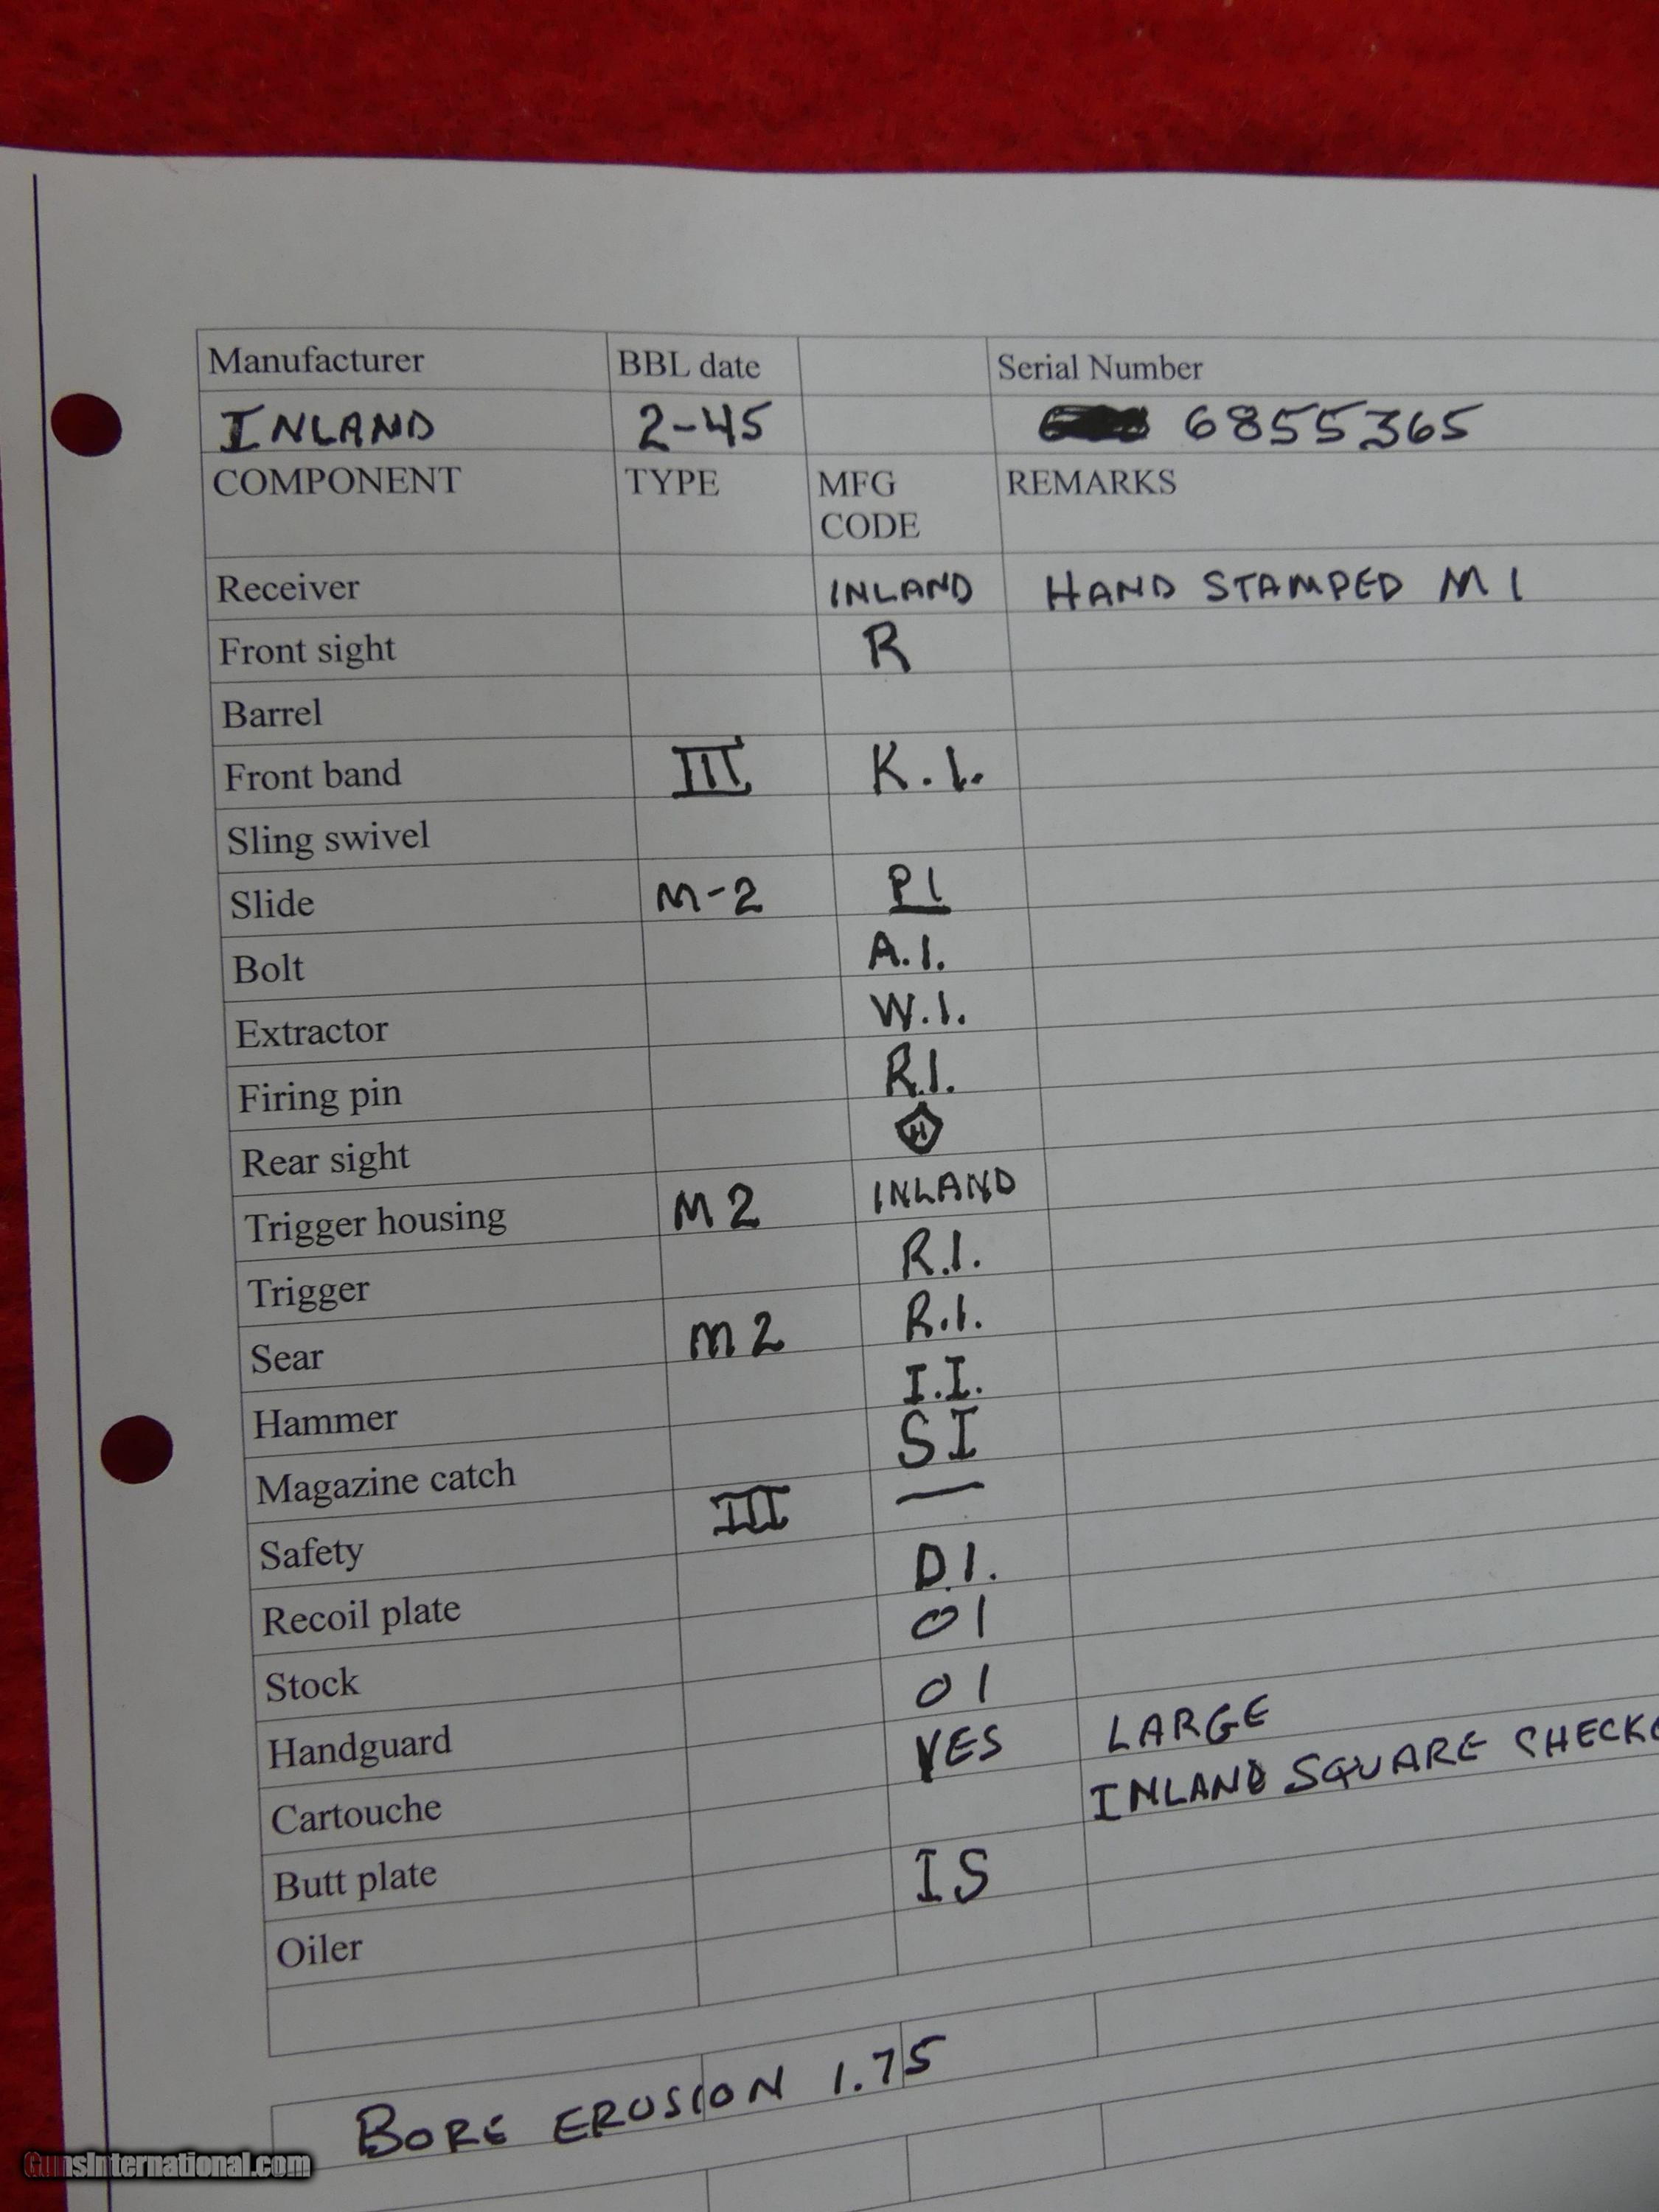 Manufacturer BBL date Serial Number
INLAND 2-45 6855365
COMPONENT TYPE MFG CODE REMARKS
Receiver INLAND HAND STAMPED M1
Front sight R
Barrel
Front band III K.I.
Sling swivel
Slide M-2 PI
Bolt A.I.
Extractor W.I.
Firing pin R.I.
Rear sight H
Trigger housing M2 INLAND
Trigger R.I.
Sear M2 R.I.
Hammer I.I.
Magazine catch SI
Safety III —
Recoil plate D.I.
Stock OI
Handguard OI
Cartouche YES LARGE
Butt plate INLAND SQUARE CHECK
Oiler IS
BORE EROSION 1.75
GunsInternational.com